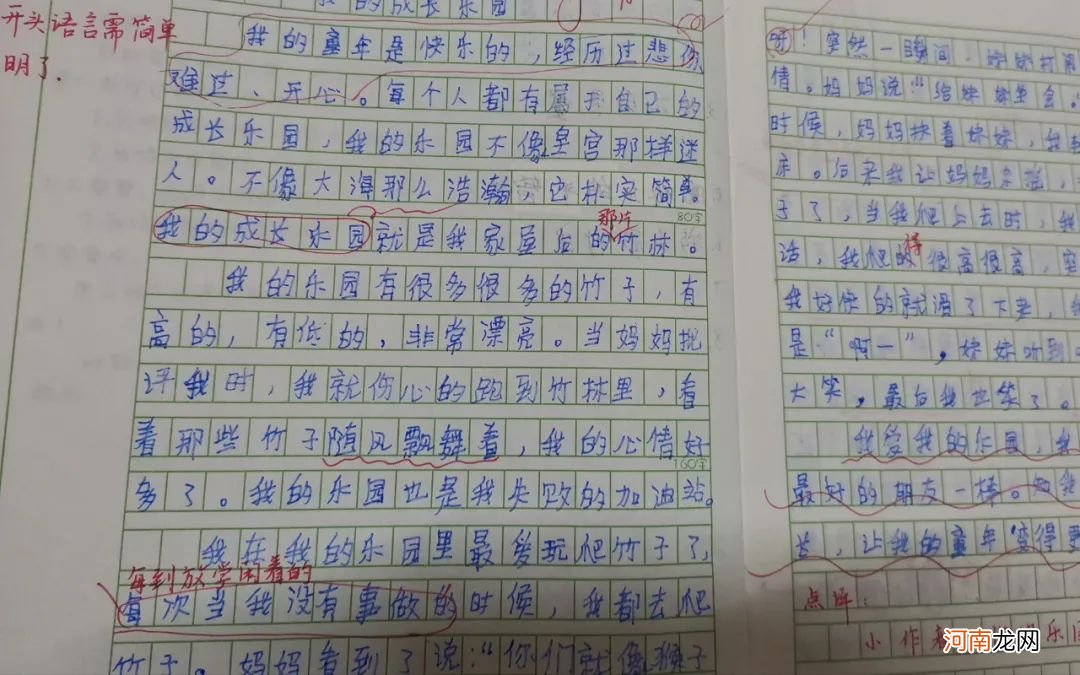 我的成长乐园
开头语言需简单
明了.
我的童年是快乐的,经历过悲伤
难过、开心。每个人都有属于自己的
成长乐园,我的乐园不像皇宫那样迷
人。不像大海那么浩瀚,它朴实简单。
80字
那片
我的成长乐园就是我家屋后的竹林。
我的乐园有很多很多的竹子,有
高的,有低的,非常漂亮。当妈妈批
评我时,我就伤心的跑到竹林里,看
着那些竹子随风飘舞着,我的心情好
160字
多了。我的乐园也是我失败的加油站。
我在我的乐园里最爱玩爬竹子了,
每到放学闲着的
每次当我没有事做的时候,我都去爬
竹子。妈妈看到了说:“你们就像猴子
呀!突然一瞬间,妹妹打
情。妈妈说“给妹妹坐会。
时候,妈妈扶着妹妹,我
来。后来我让妈妈
子了,当我爬上去时,我
得
话,我爬的很高很高,
我好快的就滑了下来,
是“啊一”,妹妹听到
大笑,最后我也笑了。
我爱我的乐园,
最好的朋友一样。
长,让我的童年变得更
点评:
小作者
河南龙网